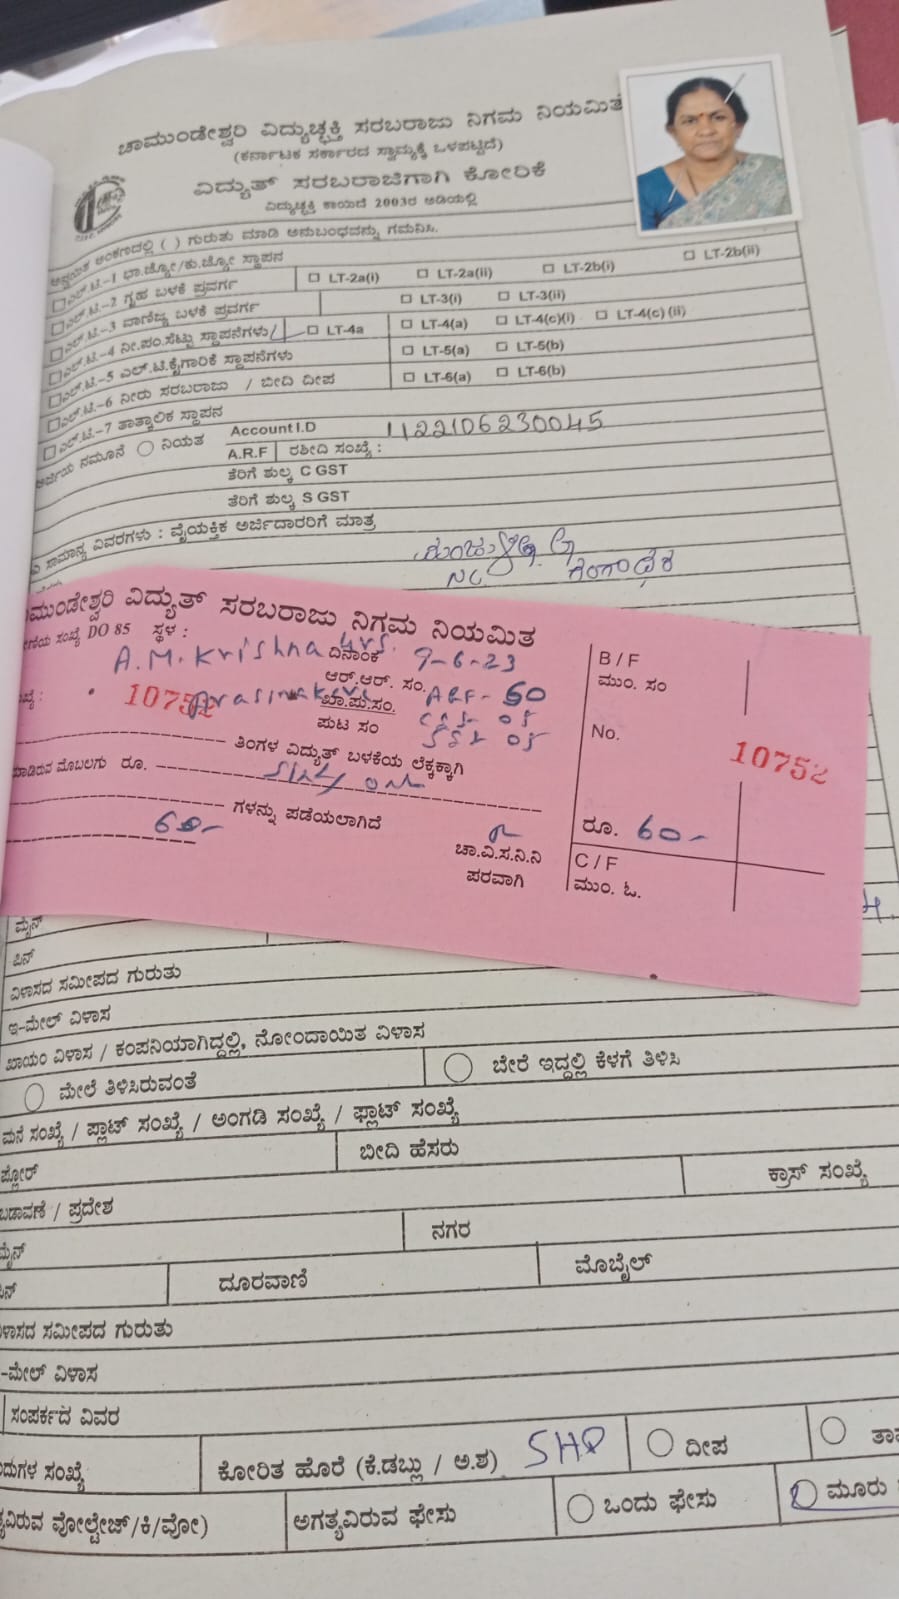 ಚಾಮುಂಡೇಶ್ವರಿ ವಿದ್ಯುಚ್ಛಕ್ತಿ ಸರಬರಾಜು ನಿಗಮ ನಿಯಮಿತ
(ಕರ್ನಾಟಕ ಸರ್ಕಾರದ ಸ್ವಾಮ್ಯಕ್ಕೆ ಒಳಪಟ್ಟಿದೆ)
ವಿದ್ಯುತ್ ಸರಬರಾಜಿಗಾಗಿ ಕೋರಿಕೆ
ವಿದ್ಯುಚ್ಛಕ್ತಿ ಕಾಯಿದೆ 2003ರ ಅಡಿಯಲ್ಲಿ
ಅಂಕಣದಲ್ಲಿ ( ) ಗುರುತು ಮಾಡಿ ಅನುಬಂಧವನ್ನು ಗಮನಿಸಿ.
ಎಲ್.ಟಿ.-1 ಭಾ.ಜ್ಯೋ/ಕು.ಜ್ಯೋ ಸ್ಥಾಪನ
ಎಲ್.ಟಿ.-2 ಗೃಹ ಬಳಕೆ ಪ್ರವರ್ಗ LT-2a(i) LT-2a(ii) LT-2b(i) LT-2b(ii)
ಎಲ್.ಟಿ.-3 ವಾಣಿಜ್ಯ ಬಳಕೆ ಪ್ರವರ್ಗ LT-3(i) LT-3(ii)
ಎಲ್.ಟಿ.-4 ನೀ.ಪಂ.ಸೆಟ್ಟು ಸ್ಥಾಪನೆಗಳು LT-4a LT-4(a) LT-4(c)(i) LT-4(c)(ii)
ಎಲ್.ಟಿ.-5 ಎಲ್.ಟಿ.ಕೈಗಾರಿಕೆ ಸ್ಥಾಪನೆಗಳು LT-5(a) LT-5(b)
ಎಲ್.ಟಿ.-6 ನೀರು ಸರಬರಾಜು / ಬೀದಿ ದೀಪ LT-6(a) LT-6(b)
ಎಲ್.ಟಿ.-7 ತಾತ್ಕಾಲಿಕ ಸ್ಥಾಪನ
ಅರ್ಜಿಯ ನಮೂನೆ ನಿಯತ Account I.D 1122106230045
A.R.F ರಶೀದಿ ಸಂಖ್ಯೆ :
ತೆರಿಗೆ ಶುಲ್ಕ C GST
ತೆರಿಗೆ ಶುಲ್ಕ S GST
ಸಾಮಾನ್ಯ ವಿವರಗಳು : ವೈಯಕ್ತಿಕ ಅರ್ಜಿದಾರರಿಗೆ ಮಾತ್ರ
ಚಾಮುಂಡೇಶ್ವರಿ ವಿದ್ಯುತ್ ಸರಬರಾಜು ನಿಗಮ ನಿಯಮಿತ
ಸಂಖ್ಯೆ DO 85 ಸ್ಥಳ :
A.M.Krishna Urs. ದಿನಾಂಕ 9-6-23
ಆರ್.ಆರ್. ಸಂ. ARF- 50
10752 Arasinakere ಖಾ.ಪು.ಸಂ. 05
ಪುಟ ಸಂ 05
ತಿಂಗಳ ವಿದ್ಯುತ್ ಬಳಕೆಯ ಲೆಕ್ಕಕ್ಕಾಗಿ
ಮಾಡಿರುವ ಮೊಬಲಗು ರೂ. Sixty only
ಗಳನ್ನು ಪಡೆಯಲಾಗಿದೆ
60-
ಚಾ.ವಿ.ಸ.ನಿ.ನಿ
ಪರವಾಗಿ
B / F
ಮುಂ. ಸಂ
No. 10752
ರೂ. 60-
C / F
ಮುಂ. ಓ.
ಮೈನ್
ಪಿನ್
ವಿಳಾಸದ ಸಮೀಪದ ಗುರುತು
ಇ-ಮೇಲ್ ವಿಳಾಸ
ಖಾಯಂ ವಿಳಾಸ / ಕಂಪನಿಯಾಗಿದ್ದಲ್ಲಿ, ನೋಂದಾಯಿತ ವಿಳಾಸ
ಮೇಲೆ ತಿಳಿಸಿರುವಂತೆ ಬೇರೆ ಇದ್ದಲ್ಲಿ ಕೆಳಗೆ ತಿಳಿಸಿ
ಮನೆ ಸಂಖ್ಯೆ / ಪ್ಲಾಟ್ ಸಂಖ್ಯೆ / ಅಂಗಡಿ ಸಂಖ್ಯೆ / ಫ್ಲಾಟ್ ಸಂಖ್ಯೆ
ಫ್ಲೋರ್ ಬೀದಿ ಹೆಸರು
ಬಡಾವಣೆ / ಪ್ರದೇಶ ಕ್ರಾಸ್ ಸಂಖ್ಯೆ
ಮೈನ್ ನಗರ
ಪಿನ್ ದೂರವಾಣಿ ಮೊಬೈಲ್
ವಿಳಾಸದ ಸಮೀಪದ ಗುರುತು
-ಮೇಲ್ ವಿಳಾಸ
ಸಂಪರ್ಕದ ವಿವರ
ಸಂಖ್ಯೆ ಕೋರಿತ ಹೊರೆ (ಕೆ.ಡಬ್ಲು / ಅ.ಶ) 5HP ದೀಪ
ಅಗತ್ಯವಿರುವ ವೋಲ್ಟೇಜ್/ಕಿ/ವೋ) ಅಗತ್ಯವಿರುವ ಫೇಸು ಒಂದು ಫೇಸು ಮೂರು